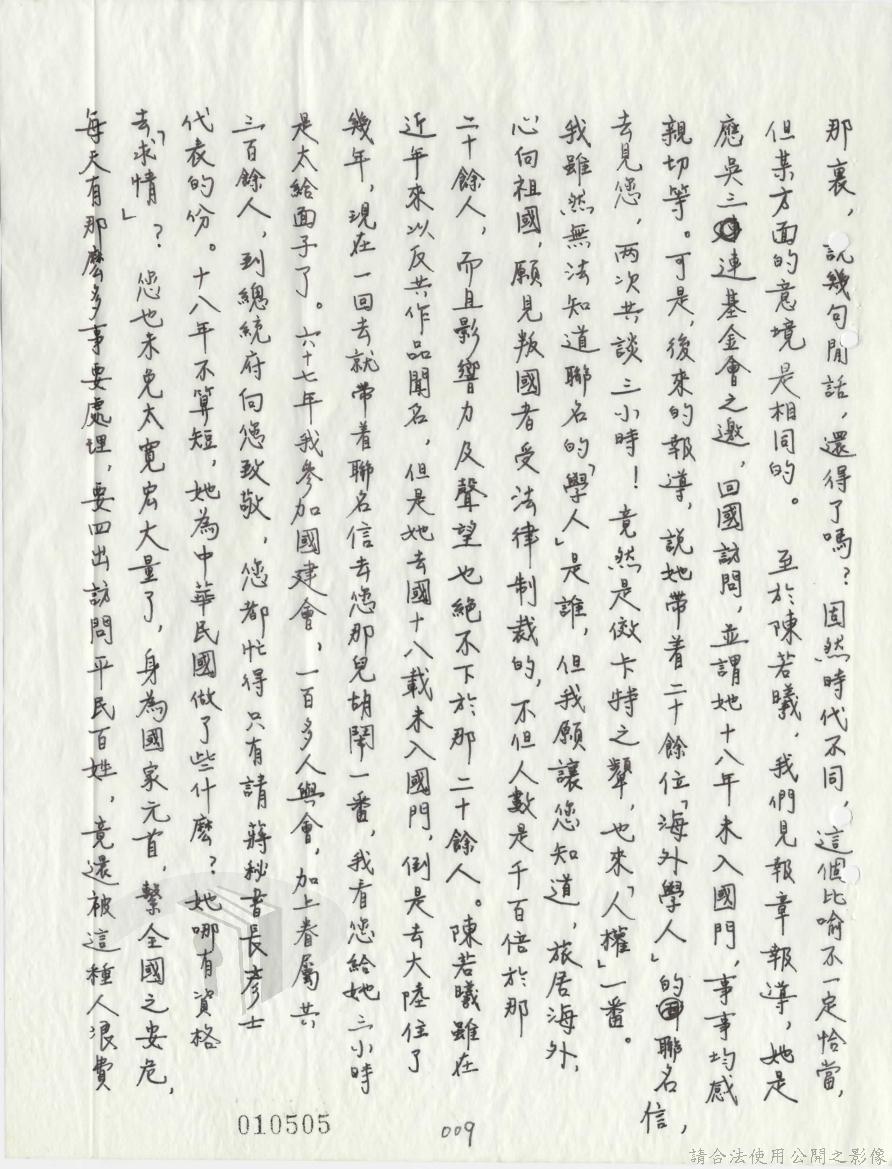 那裏，說幾句閒話，還得了嗎？固然時代不同，這個比喻不一定恰當，
但某方面的意境是相同的。　至於陳若曦，我們見報章報導，她是
應吳三連基金會之邀，回國訪問，並謂她十八年未入國門，事事均感
親切等。可是，後來的報導，說她帶着二十餘位「海外學人」的聯名信，
去見您，兩次共談三小時！竟然是傚卡特之顰，也來「人權」一番。
我雖然無法知道聯名的「學人」是誰，但我願讓您知道，旅居海外，
心向祖國，願見叛國者受法律制裁的，不但人數是千百倍於那
二十餘人，而且影響力及聲望也絕不下於那二十餘人。陳若曦雖在
近年來以反共作品聞名，但是她去國十八載未入國門，倒是去大陸住了
幾年，現在一回去就帶着聯名信去您那兒胡鬧一番，我看您給她三小時
是太給面子了。六十七年我參加國建會，一百多人與會，加上眷屬共
三百餘人，到總統府向您致敬，您都忙得只有請蔣秘書長彥士
代表的份。十八年不算短，她為中華民國做了些什麼？她哪有資格
去「求情」？您也未免太寬宏大量了，身為國家元首，繫全國之安危，
每天有那麼多事要處理，要四出訪問平民百姓，竟還被這種人浪費
010505
009
請合法使用公開之影像